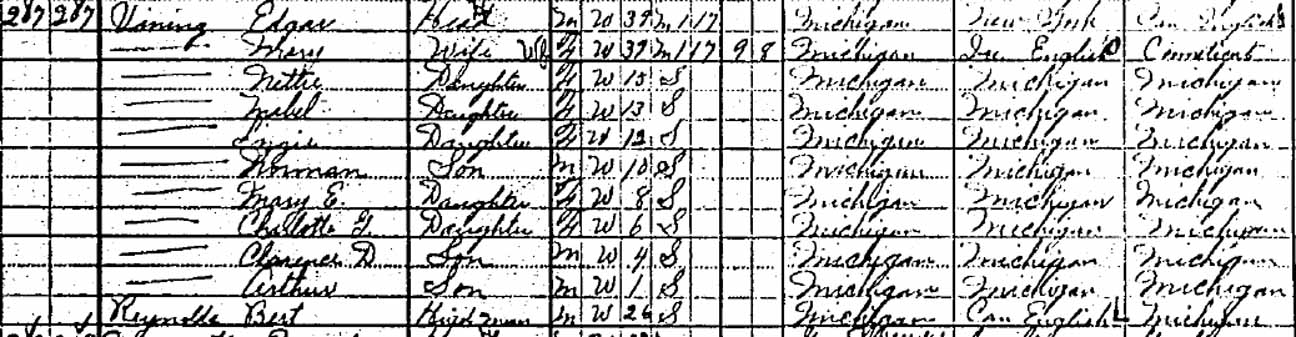 287 287 Vining Edgar Head M W 39 M1 17 Michigan New York Can English
Mary Wife F W 37 M1 17 9 8 Michigan Can English Conneticut
Nettie Daughter F W 15 S Michigan Michigan Michigan
Mabel Daughter F W 13 S Michigan Michigan Michigan
Daughter F W 12 S Michigan Michigan Michigan
Norman Son M W 10 S Michigan Michigan Michigan
Mary E. Daughter F W 8 S Michigan Michigan Michigan
Charlotte Daughter F W 6 S Michigan Michigan Michigan
Clarence D Son M W 4 S Michigan Michigan Michigan
Arthur Son M W 1 S Michigan Michigan Michigan
Reynolds Bert M W 26 S Michigan Can English Michigan